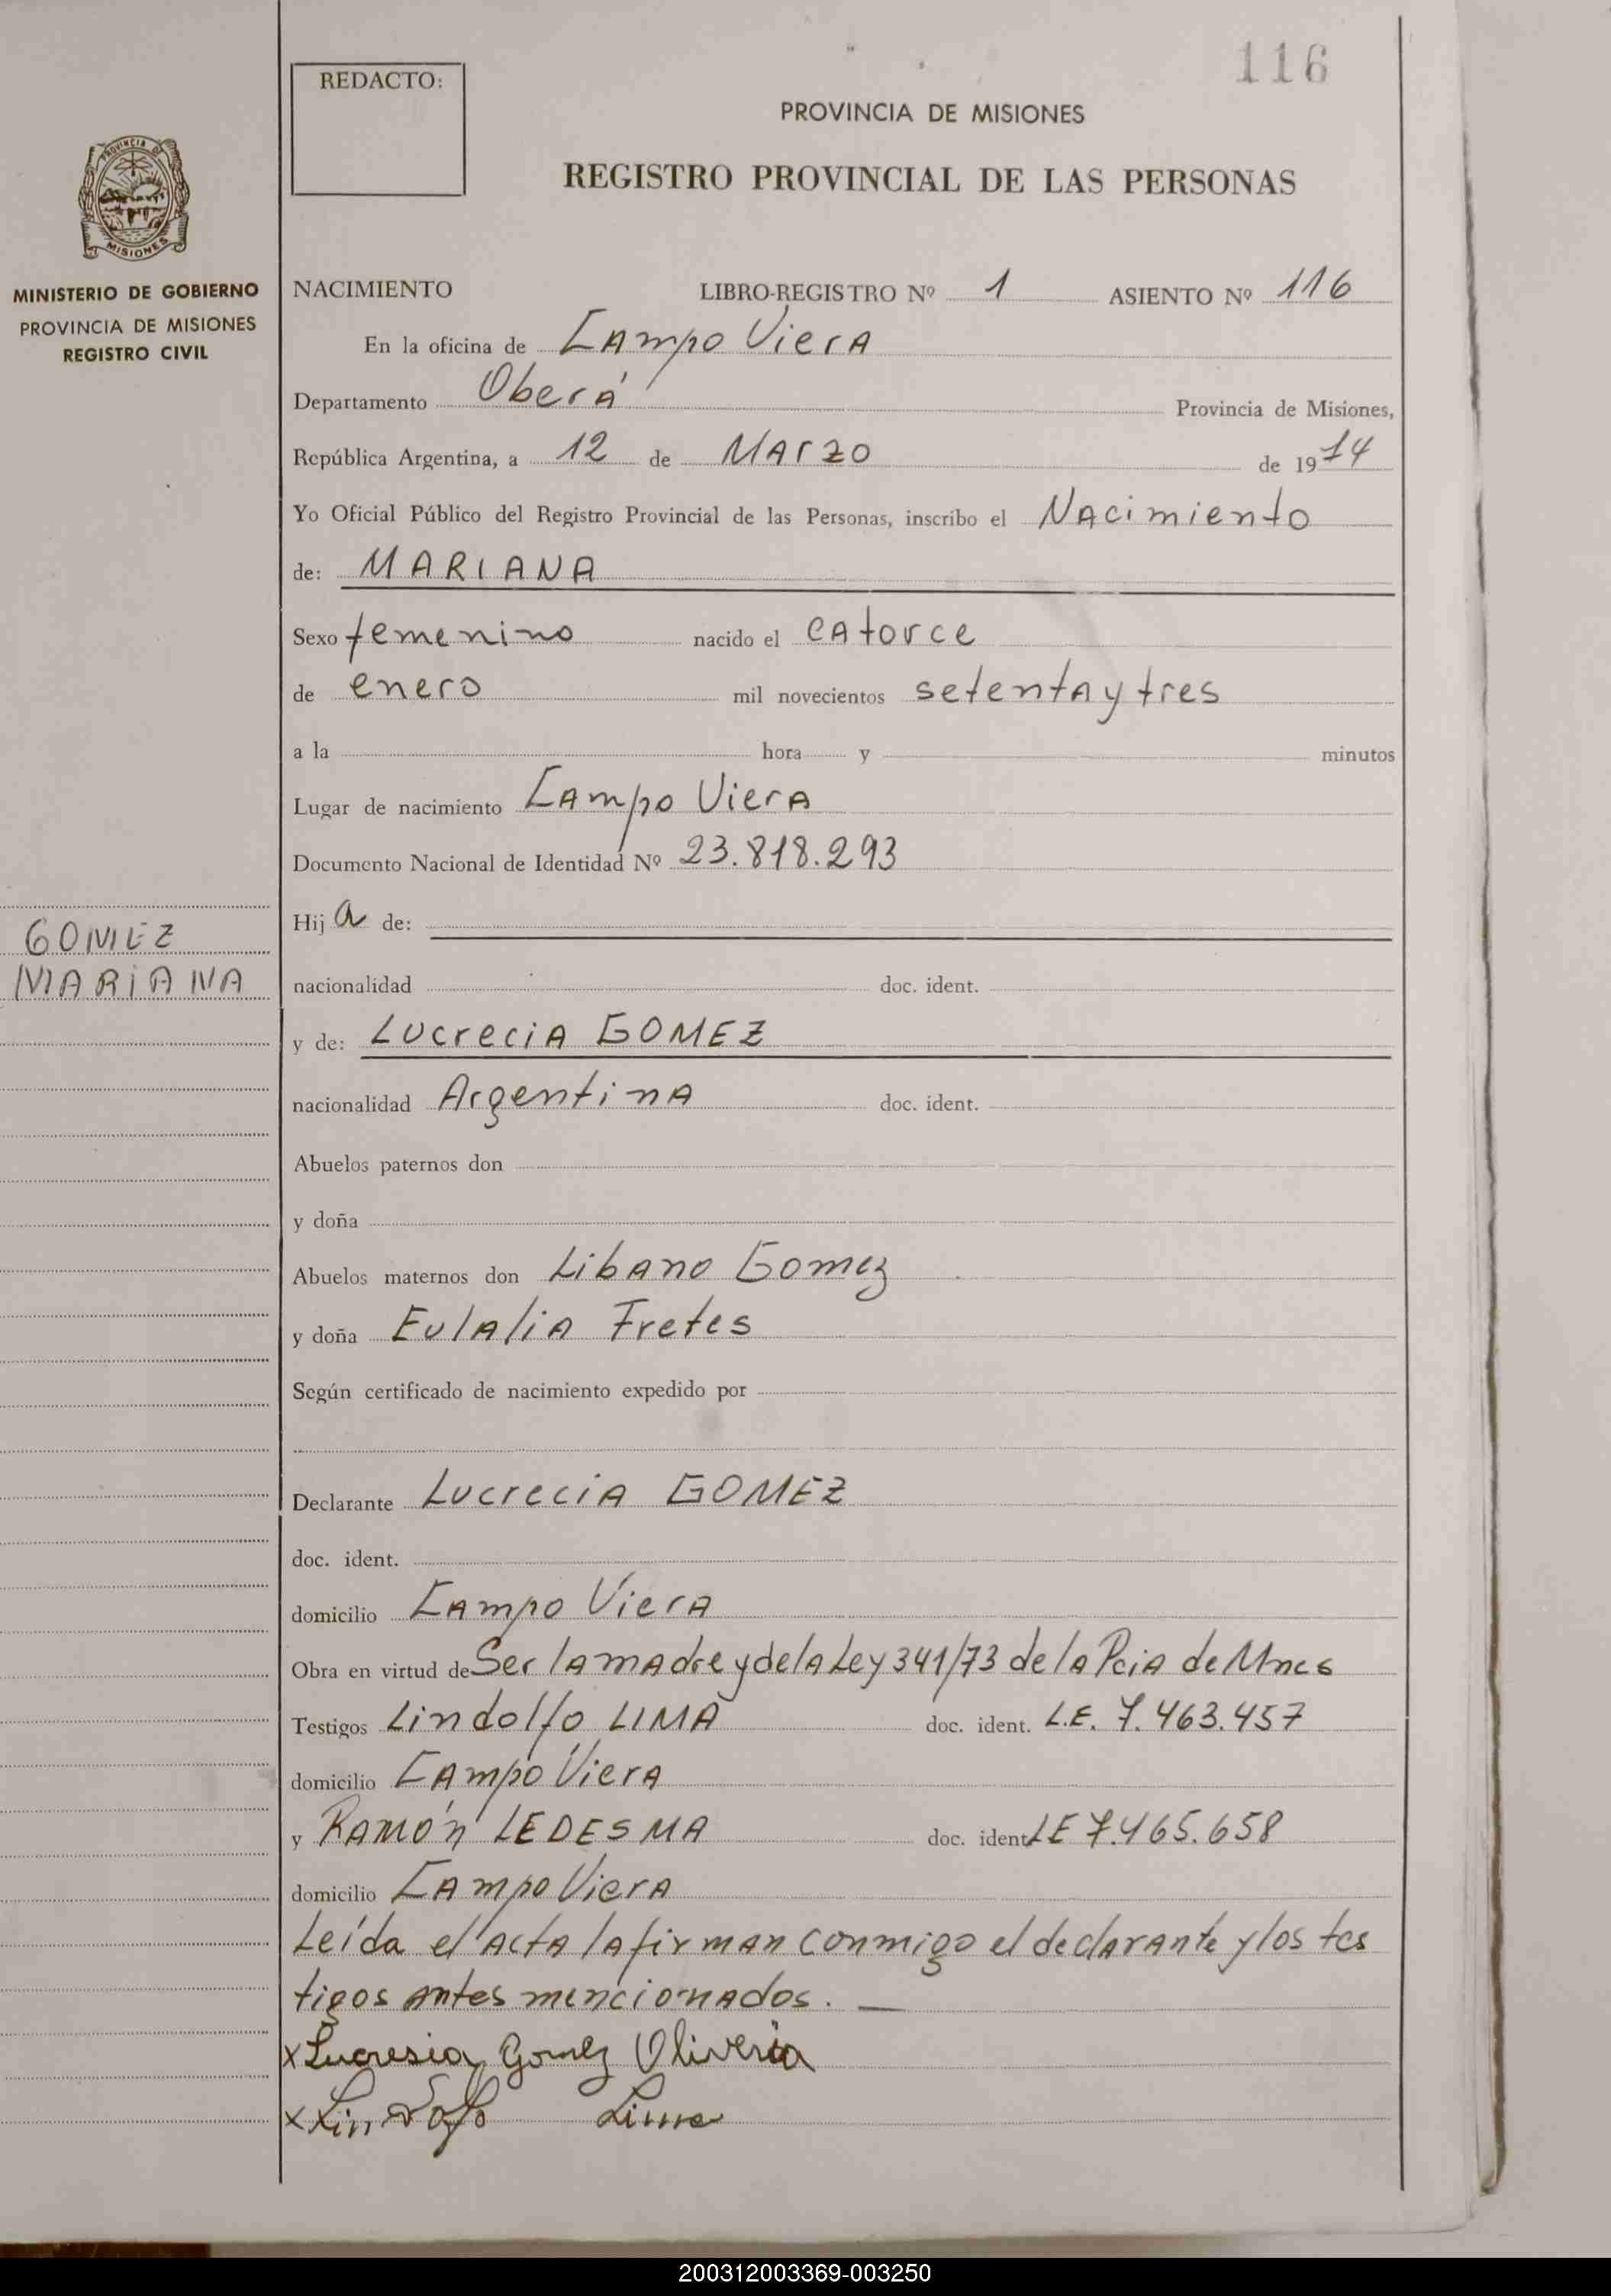 116
REDACTO:
PROVINCIA DE MISIONES
REGISTRO PROVINCIAL DE LAS PERSONAS
PROVINCIA DE
MISIONES
MINISTERIO DE GOBIERNO
PROVINCIA DE MISIONES
REGISTRO CIVIL
NACIMIENTO LIBRO-REGISTRO Nº 1 ASIENTO Nº 116
En la oficina de Campo Viera
Departamento Oberá Provincia de Misiones,
República Argentina, a 12 de Marzo de 1974
Yo Oficial Público del Registro Provincial de las Personas, inscribo el Nacimiento
de: MARIANA
Sexo femenino nacido el catorce
de enero mil novecientos setenta y tres
a la hora y minutos
Lugar de nacimiento Campo Viera
Documento Nacional de Identidad Nº 23.818.293
Hija de:
GOMEZ
MARIANA
nacionalidad doc. ident.
y de: Lucrecia GOMEZ
nacionalidad Argentina doc. ident.
Abuelos paternos don
y doña
Abuelos maternos don Libano Gomez
y doña Eulalia Fretes
Según certificado de nacimiento expedido por
Declarante Lucrecia GOMEZ
doc. ident.
domicilio Campo Viera
Obra en virtud de Ser la madre y de la Ley 341/73 de la Pcia de Mnes
Testigos Lindolfo LIMA doc. ident. L.E. 7.463.457
domicilio Campo Viera
y Ramón LEDESMA doc. ident LE 7.465.658
domicilio Campo Viera
Leída el acta la firman conmigo el declarante y los tes
tigos antes mencionados.
x Lucresia Gomez Oliveria
x Lindolfo Lima
200312003369-003250